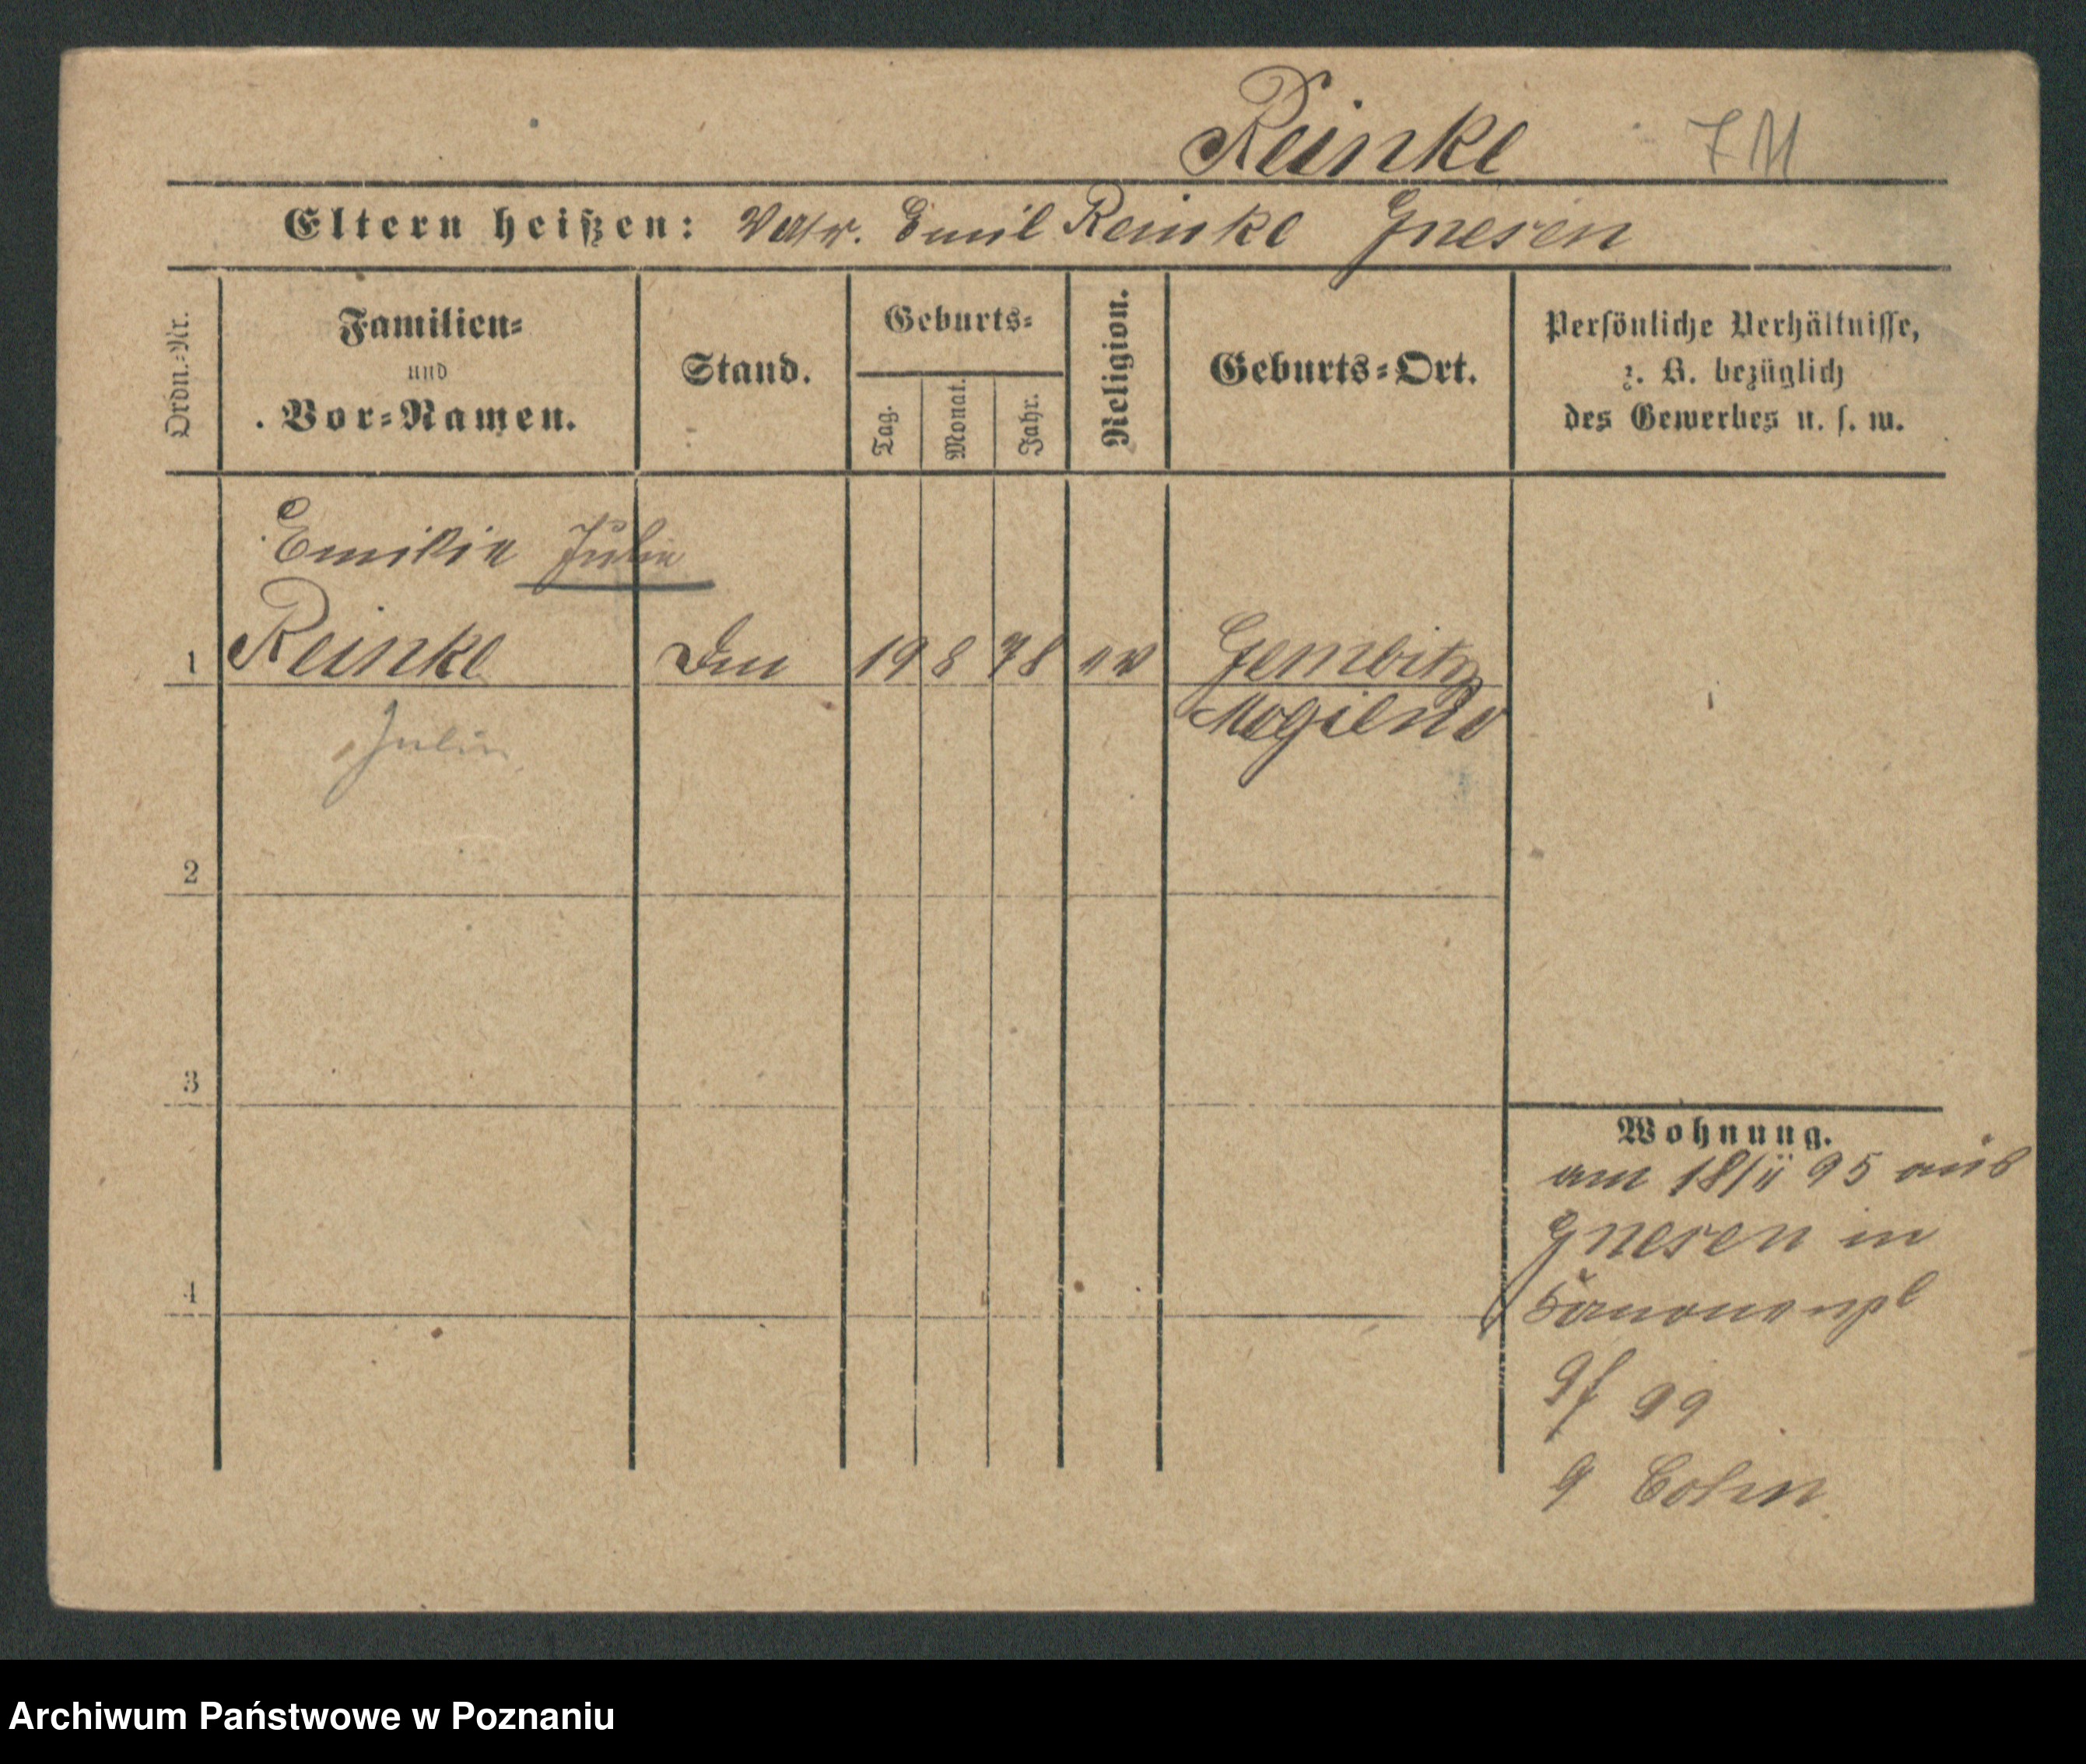 Reinke
Eltern heißen: Vater. Emil Reinke Gnesen
Ordn.-Nr.
Familien-
und
Vor-Namen.
Stand.
Geburts-
Tag.
Monat.
Jahr.
Religion.
Geburts-Ort.
Persönliche Verhältnisse,
z. B. bezüglich
des Gewerbes u. s. w.
Emilie Julie
1 Reinke 19 8 78 ev Gembitz
Mogilno
Julie
2
3
4
Wohnung.
am 18/11 95 aus
Gnesen in
Kanonenpl
9 Cohn
Archiwum Państwowe w Poznaniu